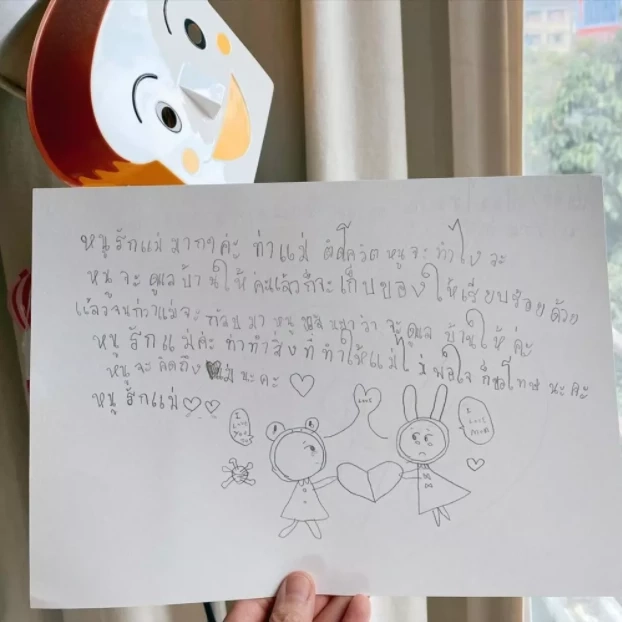 หนูรักแม่มากๆค่ะ ถ้าแม่ ติดโควิด หนูจะทำไงละ
หนูจะดูแลบ้านให้ค่ะแล้วก็จะเก็บของให้เรียบร้อยด้วย
แล้วจนกว่าแม่จะกลับมา หนู สัญญาว่า จะดูแล บ้านให้ค่ะ
หนูรักแม่ค่ะ ถ้าทำสิ่งที่ทำให้แม่ไม่พอใจ ก็ขอโทษนะคะ
หนูจะคิดถึงแม่นะคะ
หนูรักแม่
I
Love
You
LOVE
I
LOVE